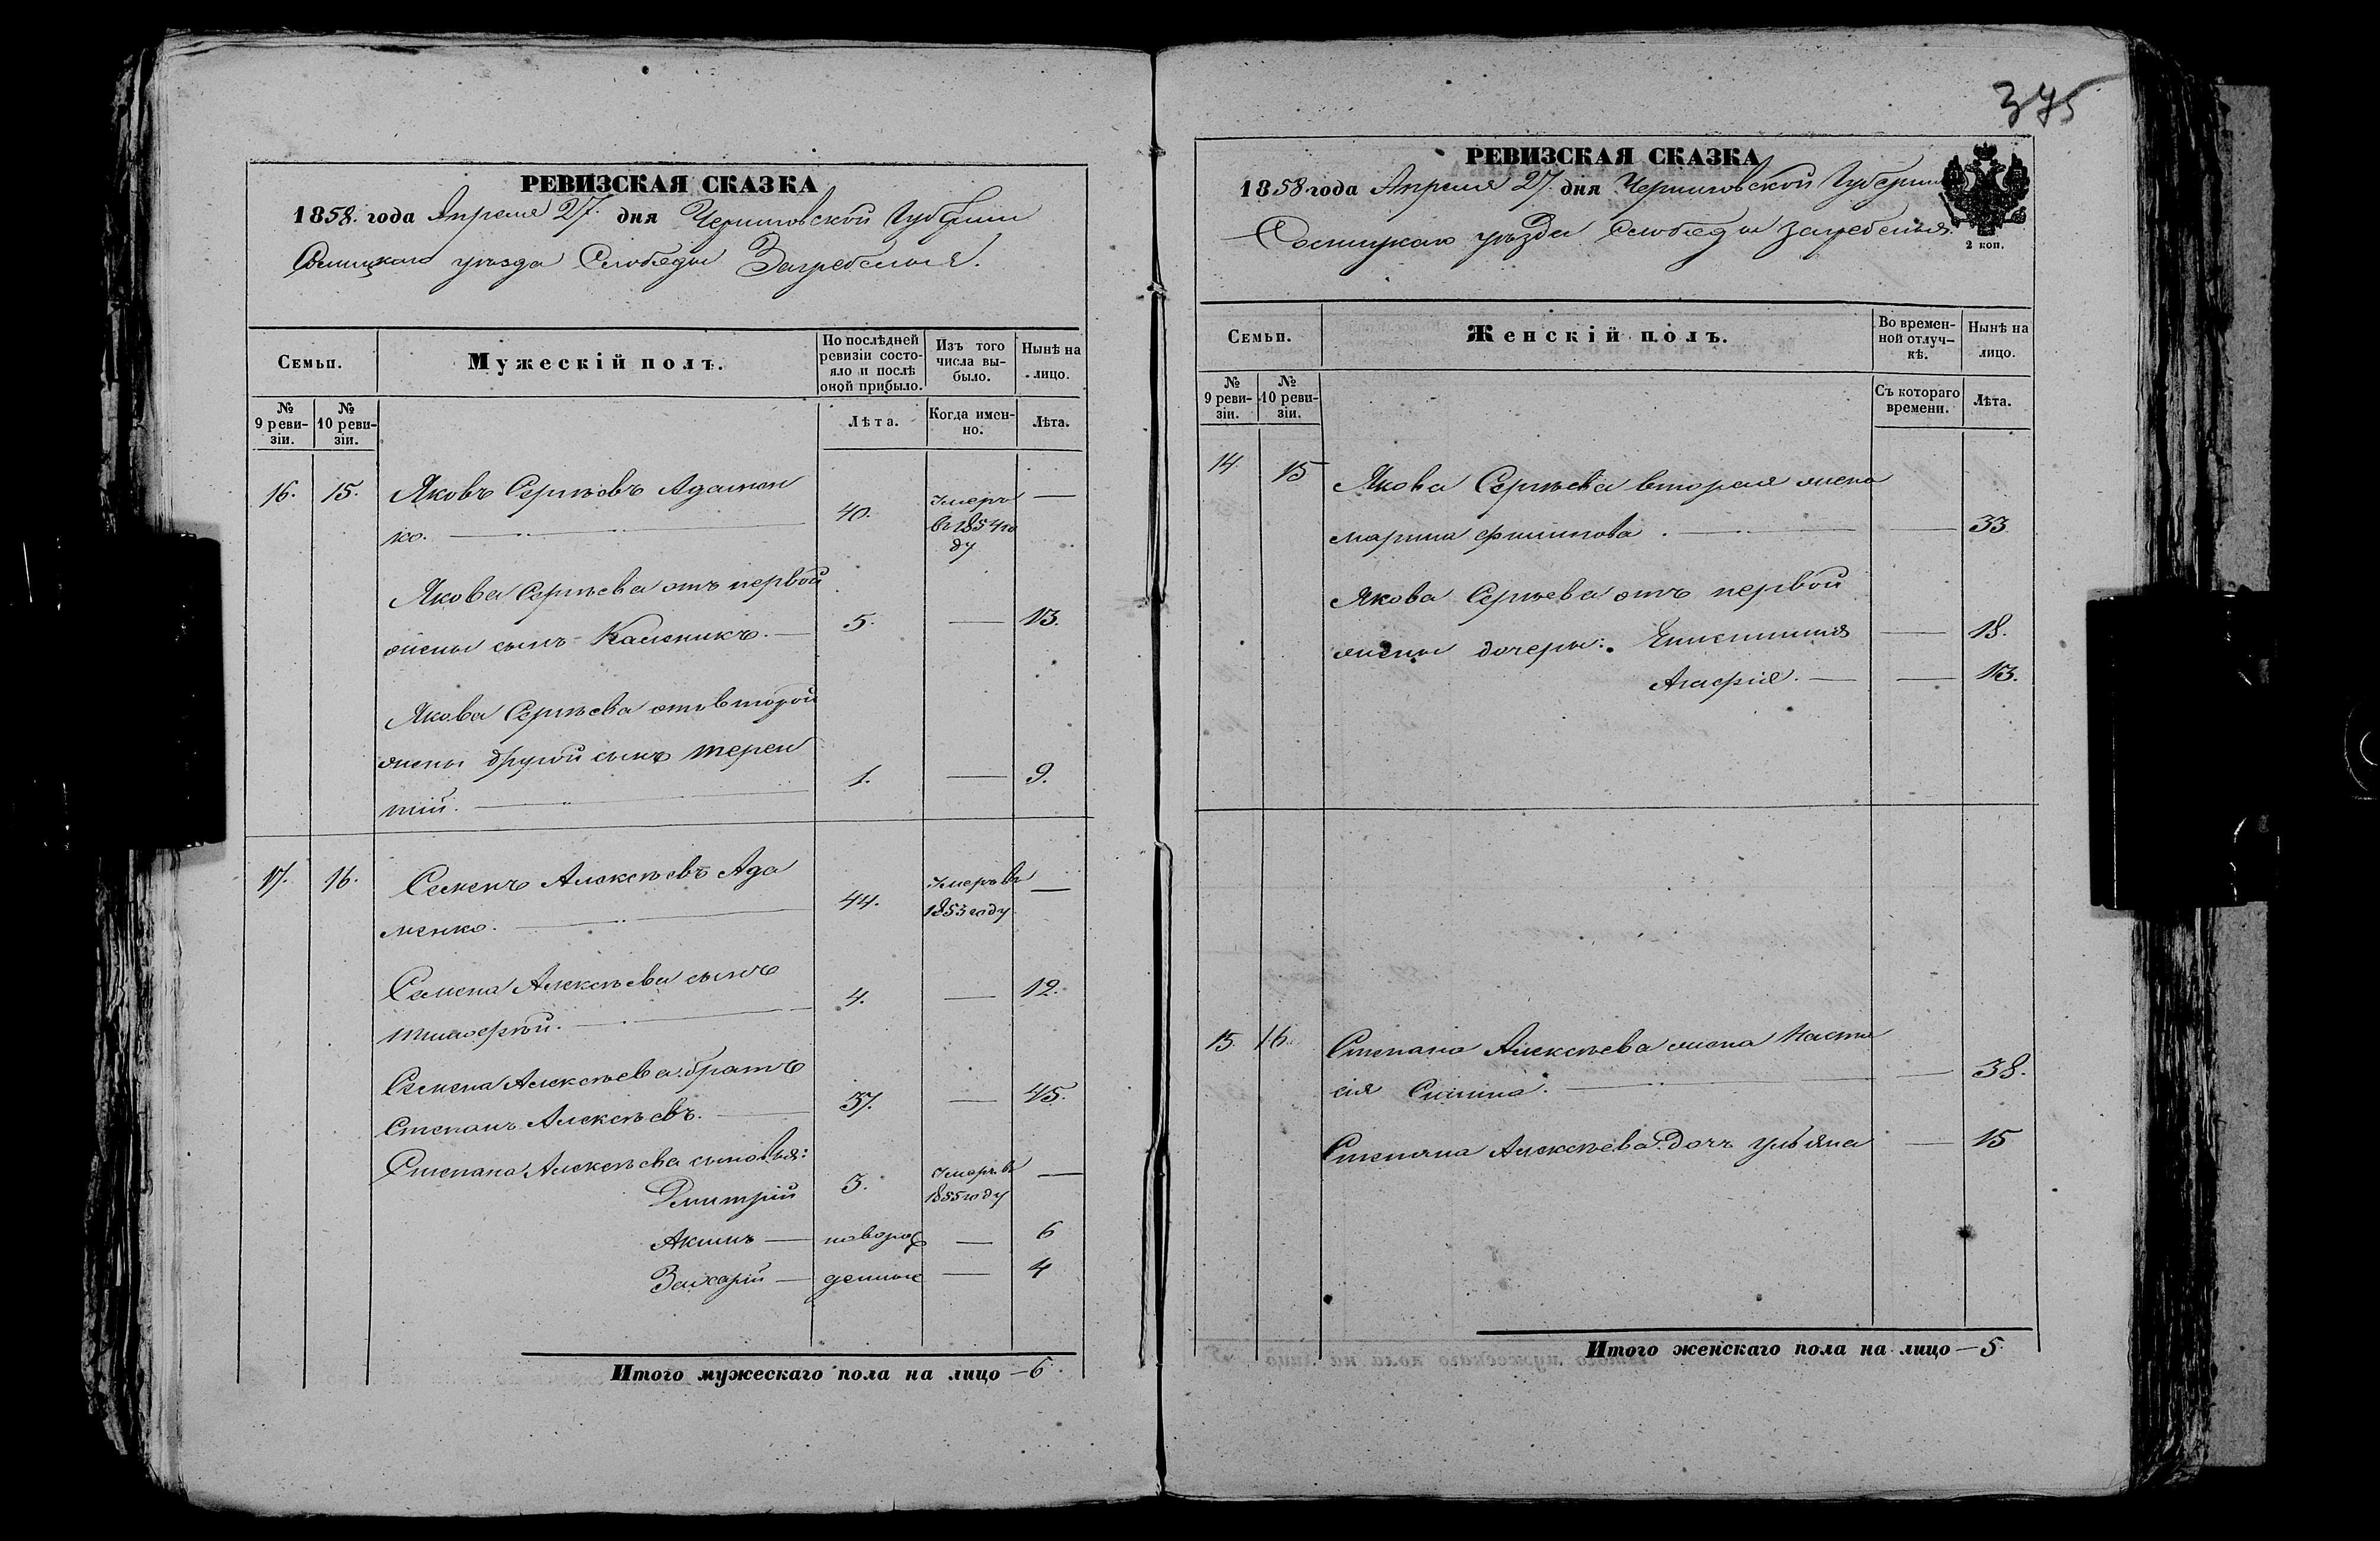 375
РЕВИЗСКАЯ СКАЗКА
1858. года Апреля 27. дня Черниговской Губернии
Сосницкаго уѣзда Слободы Загребелья.
Семьи.
Мужескій полъ.
По послѣдней
ревизіи состо-
яло и послѣ
оной прибыло.
Изъ того
числа вы-
было.
Нынѣ на
лицо.
№
9 реви-
зіи.
№
10 реви-
зіи.
Лѣта.
Когда имен-
но.
Лѣта.
16. 15. Яковъ Сергѣевъ Адамен
ко. — 40. Умеръ —
въ 1854 го
ду
Якова Сергѣева отъ первой
жены сынъ Каленикъ. — 5. — 13.
Якова Сергѣева отъ второй
жены другой сынъ Терен
тій. — 1. — 9.
17. 16. Семенъ Алексѣевъ Ада
менко. — 44. Умеръ въ —
1853 году
Семена Алексѣева сынъ
Тимофѣй. — 4. — 12.
Семена Алексѣева братъ
Степанъ Алексѣевъ. — 37. — 45.
Степана Алексѣева сыновья:
Дмитрій 3. Умеръ въ —
1855 году
Акимъ — новорож — 6
Захарій — денные — 4
Итого мужескаго пола на лицо — 6.
РЕВИЗСКАЯ СКАЗКА
1858 года Апреля 27. дня Черниговской Губернии
Сосницкаго уѣзда Слободы Загребелья.
2 коп.
Семьи.
Женскій полъ.
Во времен-
ной отлуч-
кѣ.
Нынѣ на
лицо.
№
9 реви-
зіи.
№
10 реви-
зіи.
Съ котораго
времени.
Лѣта.
14 15 Якова Сергѣева вторая жена
Марина Филипова. — — 33
Якова Сергѣева отъ первой
жены дочери: — 18.
Агафія. — — 13.
15. 16. Степана Алексѣева жена Наста
сія — — 38.
Степана Алексѣева дочь Ульяна — 15
Итого женскаго пола на лицо — 5.